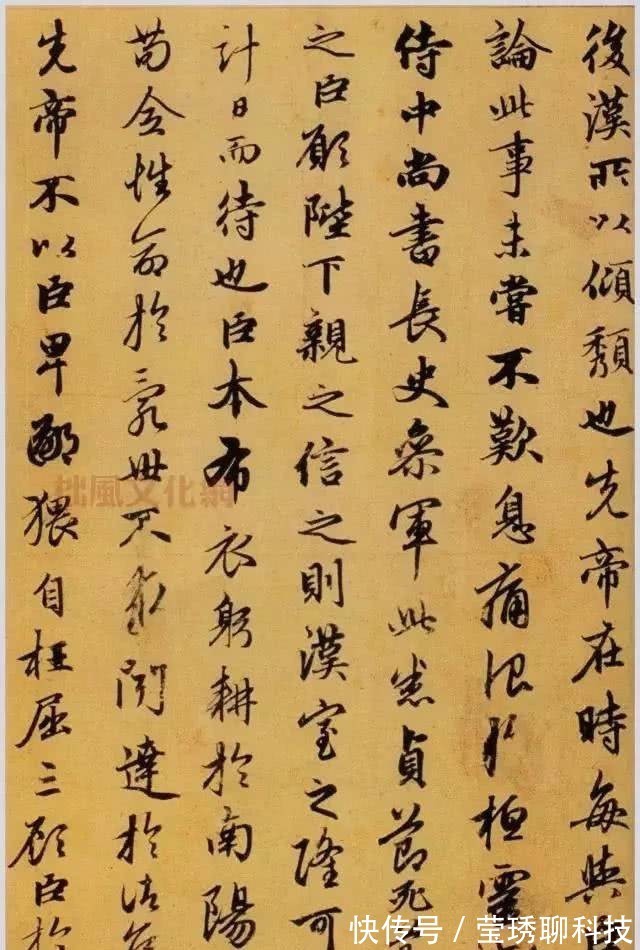 後漢所以傾頹也先帝在時每與
論此事未嘗不歎息痛恨於桓靈
侍中尚書長史參軍此悉貞節死
之臣願陛下親之信之則漢室之隆可
計日而待也臣本布衣躬耕於南陽
苟全性命於亂世不求聞達於諸侯
先帝不以臣卑鄙猥自枉屈三顧臣於
拙風文化網
快传号 / 莹琇聊科技